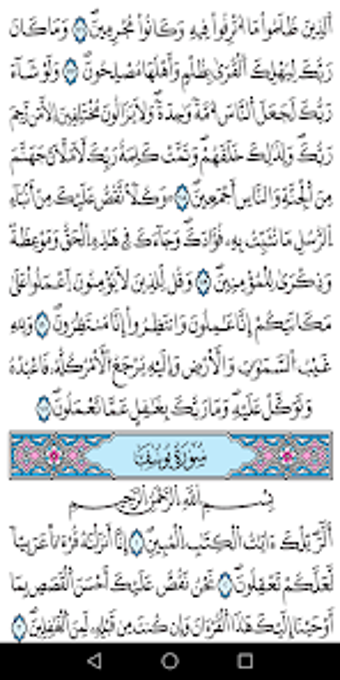 اَ۬لذِينَ ظَلَمُواْ مَآ أُتْرِفُواْ فِيهِ وَكَانُواْ مُجْرِمِينَۖ وَمَا كَانَ
رَبُّكَ لِيُهْلِكَ اَ۬لْقُر۪ىٰ بِظُلْمٖ وَأَهْلُهَا مُصْلِحُونَۖ وَلَوْ شَآءَ
رَبُّكَ لَجَعَلَ اَ۬لنَّاسَ أُمَّةٗ وَٰحِدَةٗۖ وَلَا يَزَالُونَ مُخْتَلِفِينَ إِلَّا مَن رَّحِمَ
رَبُّكَۖ وَلِذَٰلِكَ خَلَقَهُمْۖ وَتَمَّتْ كَلِمَةُ رَبِّكَ لَأَمْلَأَنَّ جَهَنَّمَ
مِنَ اَ۬لْجِنَّةِ وَالنَّاسِ أَجْمَعِينَۖ وَكُلّٗا نَّقُصُّ عَلَيْكَ مِنَ اَنۢبَآءِ
اِ۬لرُّسُلِ مَا نُثَبِّتُ بِهِۦ فُؤَادَكَۖ وَجَآءَكَ فِے هَٰذِهِ اِ۬لْحَقُّ وَمَوْعِظَةٞ
وَذِكْر۪ىٰ لِلْمُؤْمِنِينَۖ وَقُل لِّلذِينَ لَا يُؤْمِنُونَ اَ۪عْمَلُواْ عَلَىٰ
مَكَانَتِكُمْ إِنَّا عَٰمِلُونَ وَانتَظِرُوٓاْ إِنَّا مُنتَظِرُونَۖ وَلِلهِ
غَيْبُ اُ۬لسَّمَٰوَٰتِ وَالْأَرْضِ وَإِلَيْهِ يُرْجَعُ اُ۬لْأَمْرُ كُلُّهُۥ فَاعْبُدْهُ
وَتَوَكَّلْ عَلَيْهِۖ وَمَا رَبُّكَ بِغَٰفِلٍ عَمَّا تَعْمَلُونَۖ
سُورَةُ يُوسُفَ
بِسْمِ اِ۬للَّهِ اِ۬لرَّحْمَٰنِ اِ۬لرَّحِيمِ
أَلَٓرۖ تِلْكَ ءَايَٰتُ اُ۬لْكِتَٰبِ اِ۬لْمُبِينِۖ إِنَّآ أَنزَلْنَٰهُ قُرْءَٰناً عَرَبِيّاٗ
لَّعَلَّكُمْ تَعْقِلُونَۖ نَحْنُ نَقُصُّ عَلَيْكَ أَحْسَنَ اَ۬لْقَصَصِ بِمَآ
أَوْحَيْنَآ إِلَيْكَ هَٰذَا اَ۬لْقُرْءَانَ وَإِن كُنتَ مِن قَبْلِهِۦ لَمِنَ اَ۬لْغَٰفِلِينَۖ